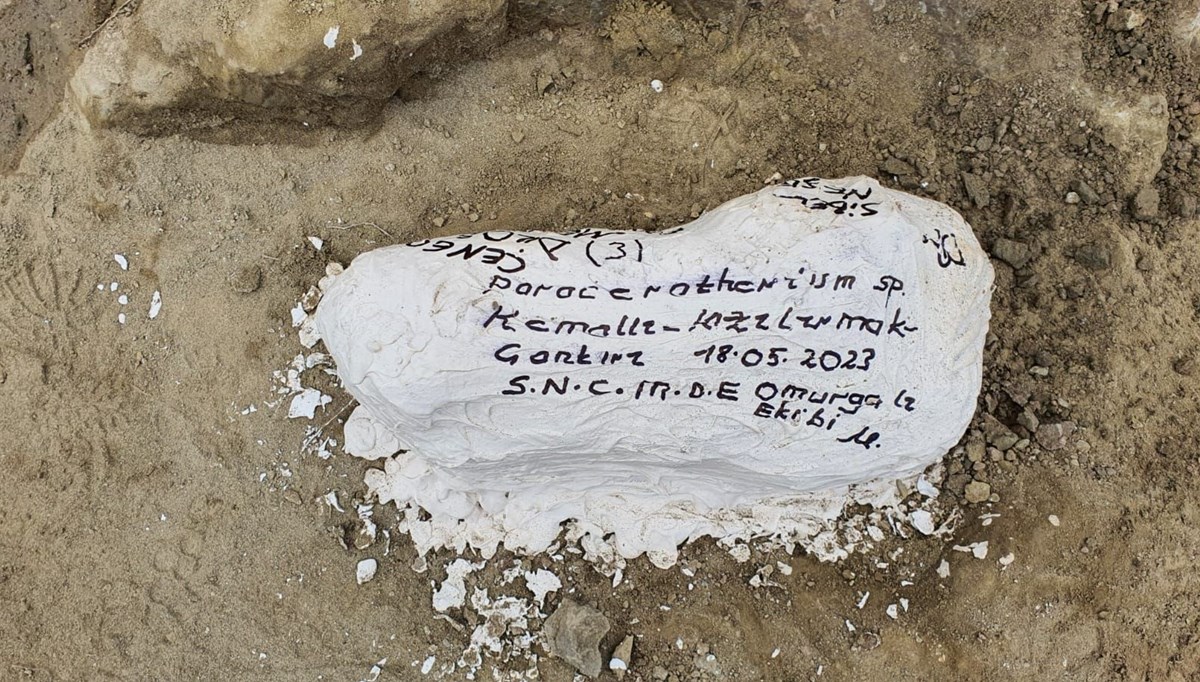 SiBEL
(3)
Paraceratherium sp.
Kemallı-Kızılırmak-
Çankırı 18.05.2023
S.N.C.M.D.E Omurgalı
Ekibi